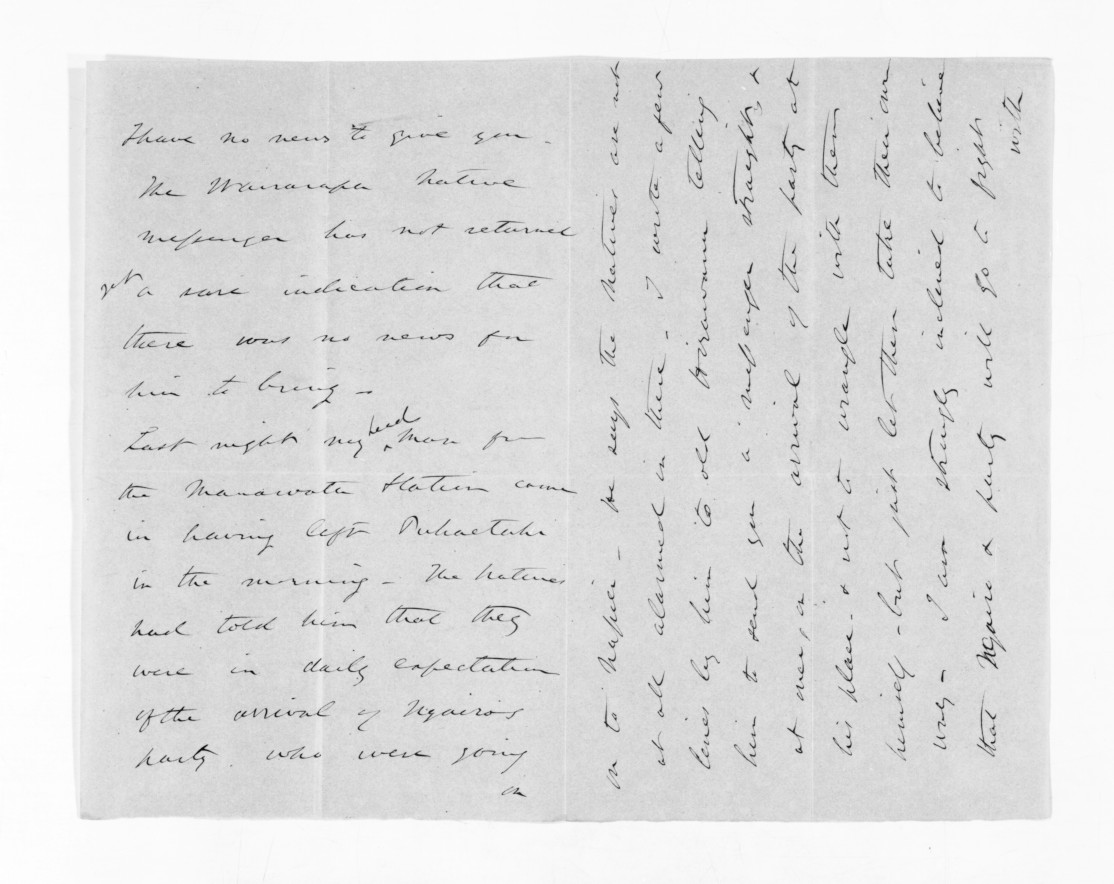 I have no news to give you.
The Wairarapa Native
messenger has not returned
yet a sure indication that
there was no news for
him to bring -
Last night my head man from
the Manawatu Station came
in having left Puhaetahi
in the morning - The Natives
had told him that they
were in daily expectation
of the arrival of Ngairo's
party who were going
on
on to Napier - he says the Natives are not
at all alarmed in there - I wrote a few
lines by him to old Hirawanu telling
him to send you a messenger straight &
at once, on the arrival of the party at
his place - & not to wrangle with them
himself - but just let them take their own
way - I am strongly inclined to believe
that Ngairo & party will go to fight
with